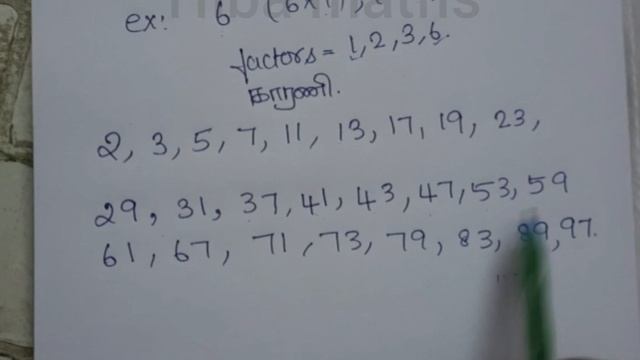 ex: 6 (6x1),
factors = 1, 2, 3, 6.
காரணி.
2, 3, 5, 7, 11, 13, 17, 19, 23,
29, 31, 37, 41, 43, 47, 53, 59
61, 67, 71, 73, 79, 83, 89, 97.